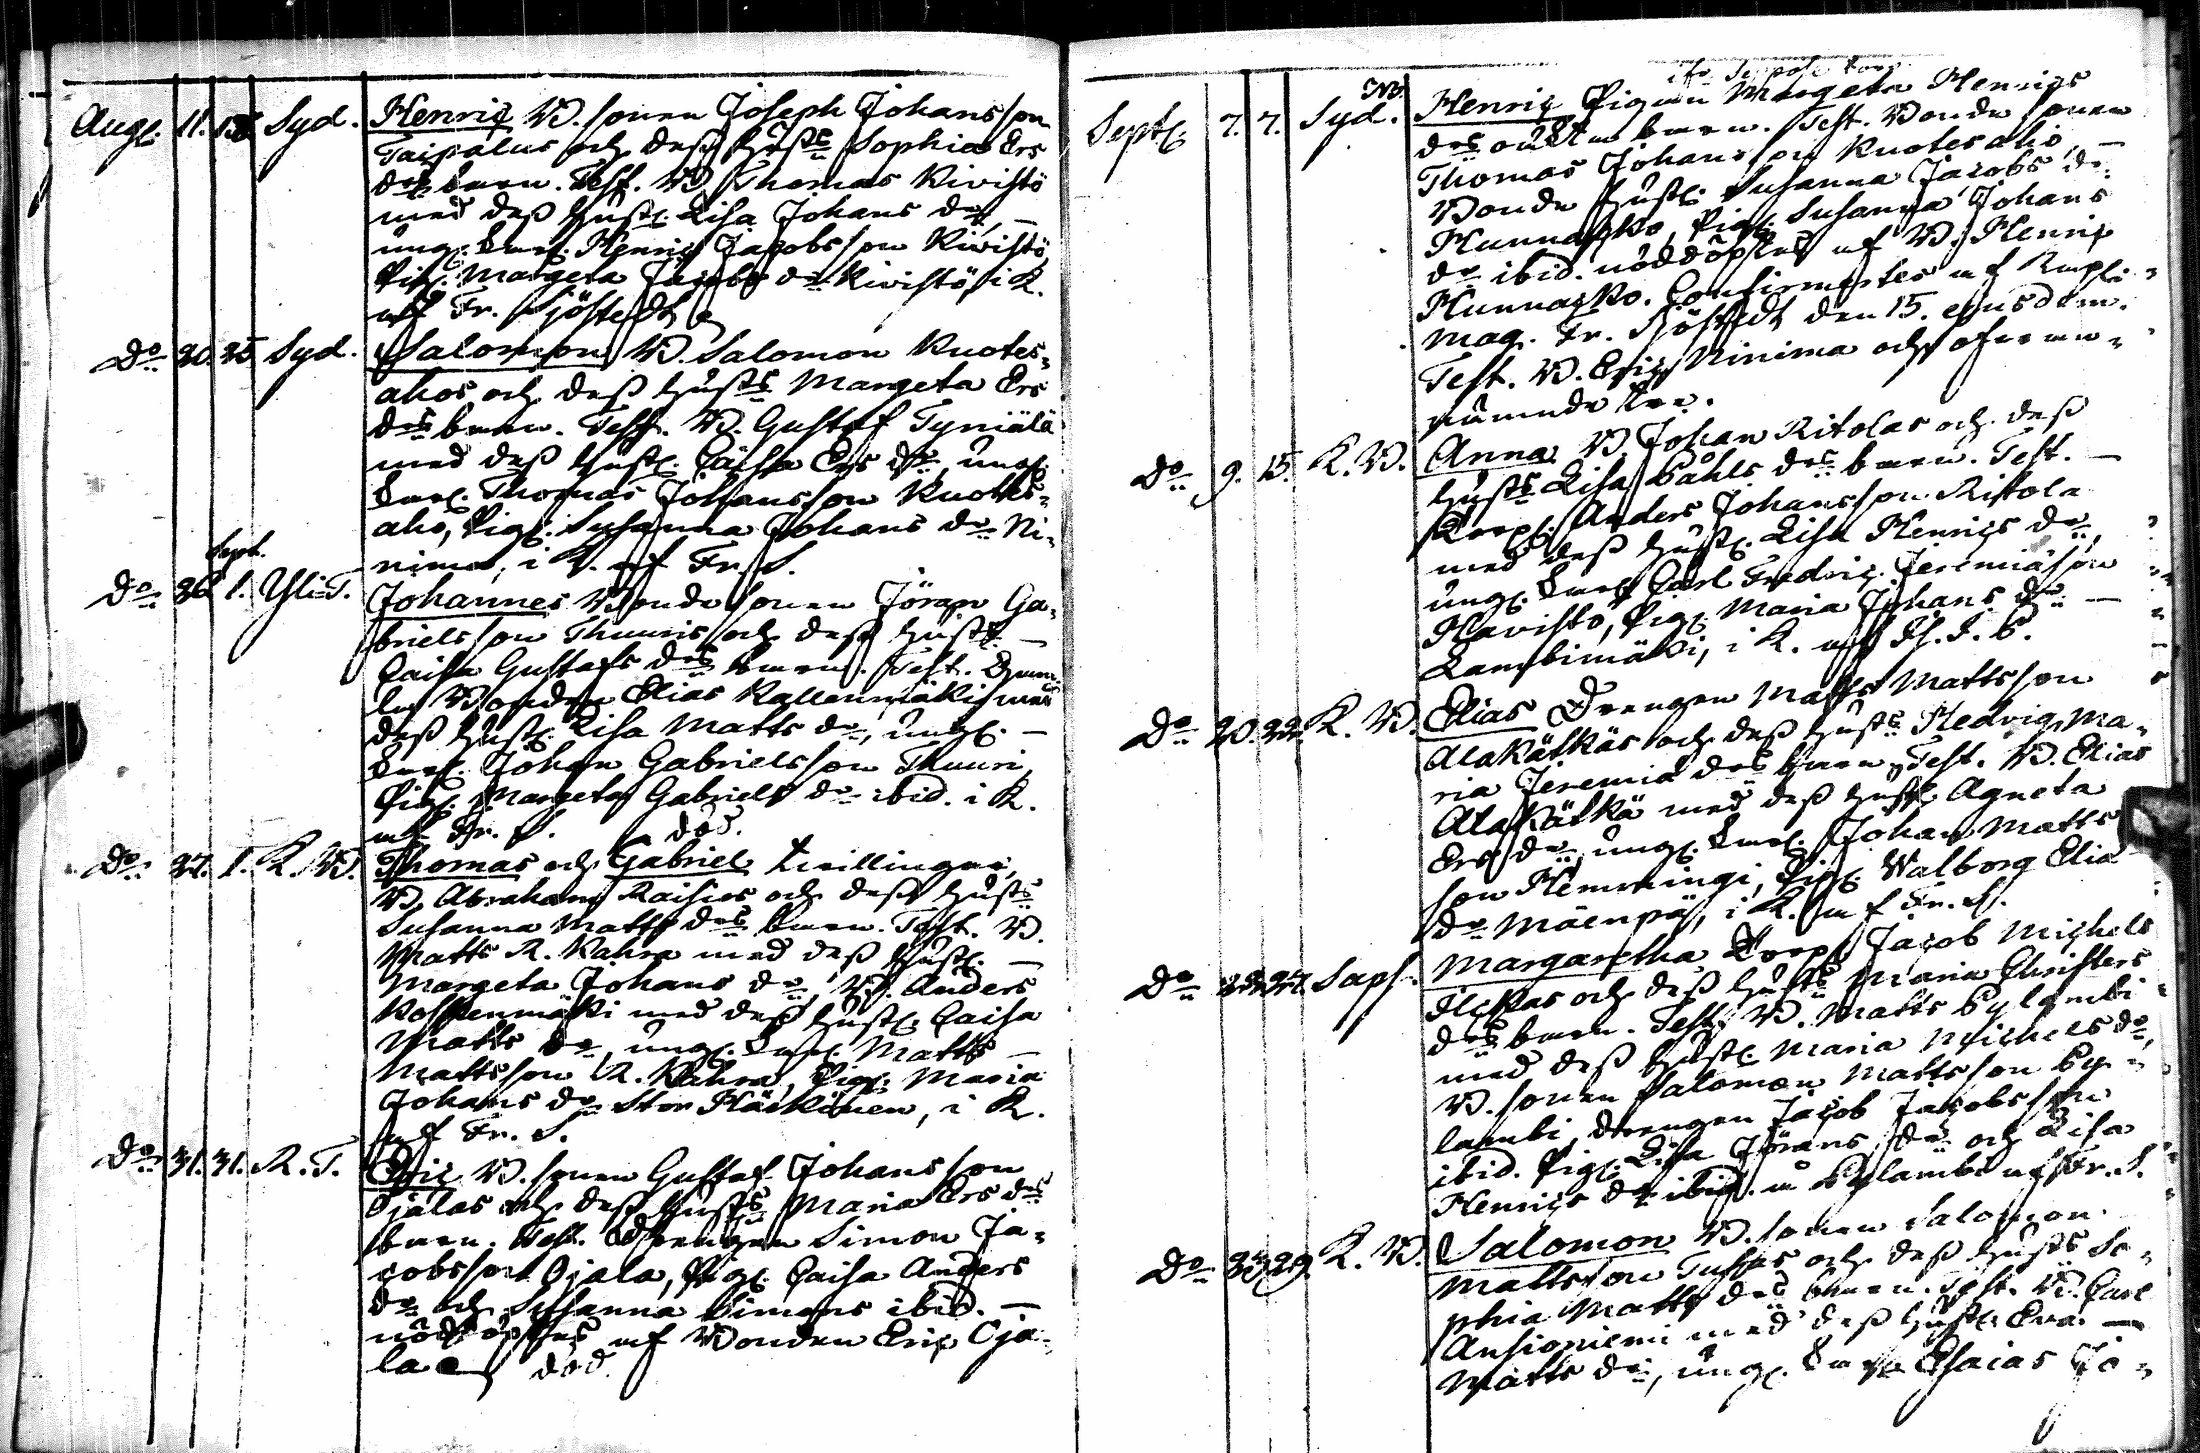 Augt. 11. 13 Syd. Henric B. sonen Joseph Johansson
Taipalus och dess Hust:s Sophia Ers
drs barn. Test. B. Thomas Kivistö
med dess Hust. Lisa Johans dr, —
ung. Karl. Henric Jacobsson Kivistö,
Pig. Margeta Jacobs dr Kivistö, i K.
af Fr. Sjöstedt
Do 20. 25 Syd. Salomon, B. Salomon Knotes-
ahos och dess Hust:s Margeta Ers
drs barn. Test. B. Gustaf Tyniälä
med dess Hust. Caisa Ers dr, ung.
Karl. Thomas Johansson Knotes-
aho, Pig. Susanna Johans dr Ni-
nima, i K. af Fr. S.
Sept.
Do 26 1. Yli-T. Johannes Bonde sonen Jöran Ga-
brielsson Thuuris och dess Hust:s —
Caisa Gustafs drs barn. Test. Gam-
le Bonden Elias Kallenmäki med
dess Hust. Lisa Matts dr, ung. —
Karl. Johan Gabrielsson Thuuri,
Pig. Margeta Gabriels dr ibid. i K.
af Fr. S.
död.
Do 27. 1. K. B. Thomas och Gabriel tvillingar,
B. Abraham Raisios och dess Hust:s
Susanna Matts drs barn. Test. B.
Matts R. Kahra med dess Hust. —
Margeta Johans dr, B. Anders
Koskenmäki med dess Hust. Caisa
Matts dr, ung. Karl. Matts —
Mattsson R. Kahra, Pig. Maria
Johans dr Stor Häckönen, i K.
af Fr. S.
Do 31. 31. R. T. Eric B. sonen Gustaf Johansson
Ojalas och dess Hust:s Maria Ers drs
barn. Test. Drengen Simon Ja-
cobsson Ojala, Pig. Caisa Anders
dr och Susanna Simons ibid. —
nöddöptes af Bonden Eric Oja-
la död.
Sept. 7. 7. Syd. Henric Pigan Margeta Henrics
drs oäkta barn. Test. Bonde sonen
Thomas Johansson Knotesaho, —
Bonde Hust. Susanna Jacobs dr
Hunnacko, Pig. Susanna Johans
dr ibid. nöddöptes af B. Henric
Hunnacko. Confirmertes af Kapl:
Mag. Fr. Sjöstedt den 15. ejusdem.
Test. B. Eric Ninima och ofvan-
nämnde tre.
Do 9. 15. K. B. Anna B. Johan Ritolas och dess
Hust:s Lisa Påhls drs barn. Test. —
Torp. Anders Johansson Ristola
med dess Hust. Lisa Henrics dr,
ung. Karl Carl Fredric Jeremiason
Havisto, Pig. Maria Johans dr —
Lambimäki, i K. af
Do 20. 22. K. B. Elias Drengen Matts Mattsson
Alakätkäs och dess Hust:s Hedvig Ma-
ria Jeremiä drs barn. Test. B. Elias
Alakätkä med dess Hust. Agneta
Ers dr, ung. Karl. Johan Matts
son Hemmingi, Pig. Walborg Elia
dr Mäenpä, i K. af Fr. S.
Do 22. 27. Saps. Margaretha Torp. Jacob Michels
och dess Hust:s Maria Christers
drs barn. Test. B. Matts Pylambi
med dess Hust. Maria Michels dr,
B. sonen Salomon Mattsson Py-
lambi, drengen Jacob Jacobsson
ibid. Pig. Lisa Jörans dr och Lisa
Henrics dr ibid. i Pylambi af Fr. S.
Do 23 29. K. B. Salomon B. sonen Salomon
Mattsson Tuskas och dess Hust:s So-
phia Matts drs barn. Test. B. Carl
Ansioniemi med dess Hust. Eva —
Matts dr, ung. Karl Esaias Jo-